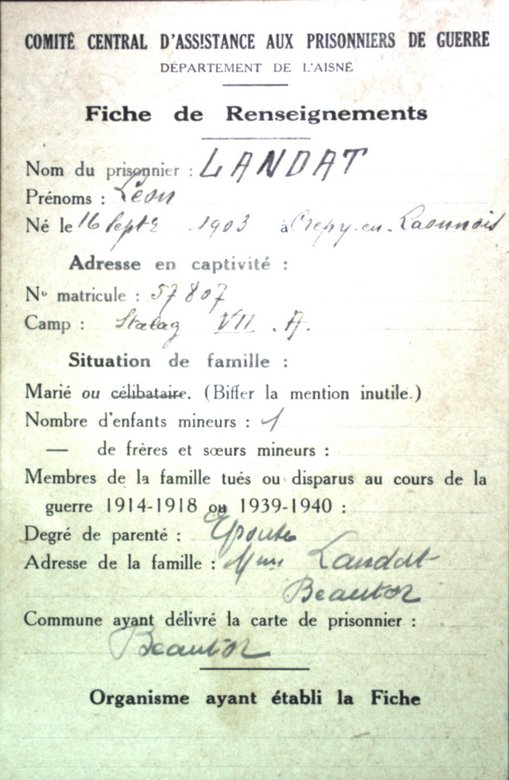 COMITÉ CENTRAL D'ASSISTANCE AUX PRISONNIERS DE GUERRE
DÉPARTEMENT DE L'AISNE
Fiche de Renseignements
Nom du prisonnier : LANDAT
Prénoms : Léon
Né le 16 Septe 1903 à Crépy-en-Laonnois
Adresse en captivité :
No matricule : 57807
Camp : Stalag VII. A.
Situation de famille :
Marié ou célibataire. (Biffer la mention inutile.)
Nombre d'enfants mineurs : 1
— de frères et sœurs mineurs :
Membres de la famille tués ou disparus au cours de la
guerre 1914-1918 ou 1939-1940 :
Degré de parenté : Epouse
Adresse de la famille : Mme Landat
Beautor
Commune ayant délivré la carte de prisonnier :
Beautor
Organisme ayant établi la Fiche